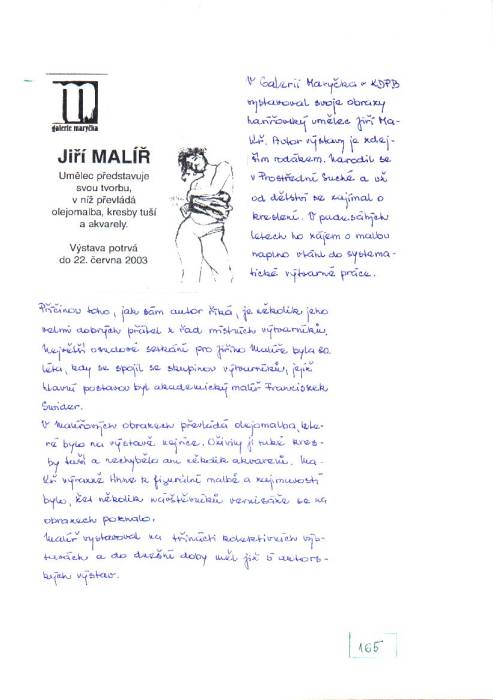 galerie maryčka
Jiří MALÍŘ
Umělec představuje
svou tvorbu,
v níž převládá
olejomalba, kresby tuší
a akvarely.
Výstava potrvá
do 22. června 2003
V Galerii Maryčka v KDPB
vystavoval svoje obrazy
havířovský umělec Jiří Ma-
líř. Autor výstavy je zdej-
ším rodákem. Narodil se
v Prostřední Suché a už
od dětství se zajímal o
kreslení. V padesátých
letech ho zájem o malbu
naplno vtáhl do systema-
tické výtvarné práce.
Příčinou toho, jak sám autor říká, je několik jeho
velmi dobrých přátel z řad místních výtvarníků.
Největší osudové setkání pro Jiřího Malíře byla 60.
léta, kdy se spojil se skupinou výtvarníků, jejíž
hlavní postavou byl akademický malíř Franciszek
Świder.
V Malířových obrazech převládá olejomalba, kte-
ré bylo na výstavě nejvíce. Oživily ji také kres-
by tuší a nechybělo ani několik akvarelů. Ma-
líř výrazně lhne k figurální malbě a zajímavostí
bylo, že několik návštěvníků vernisáže se na
obrazech poznalo.
Malíř vystavoval na třinácti kolektivních výs-
tavách a do dnešní doby měl již 5 autors-
kých výstav.
165